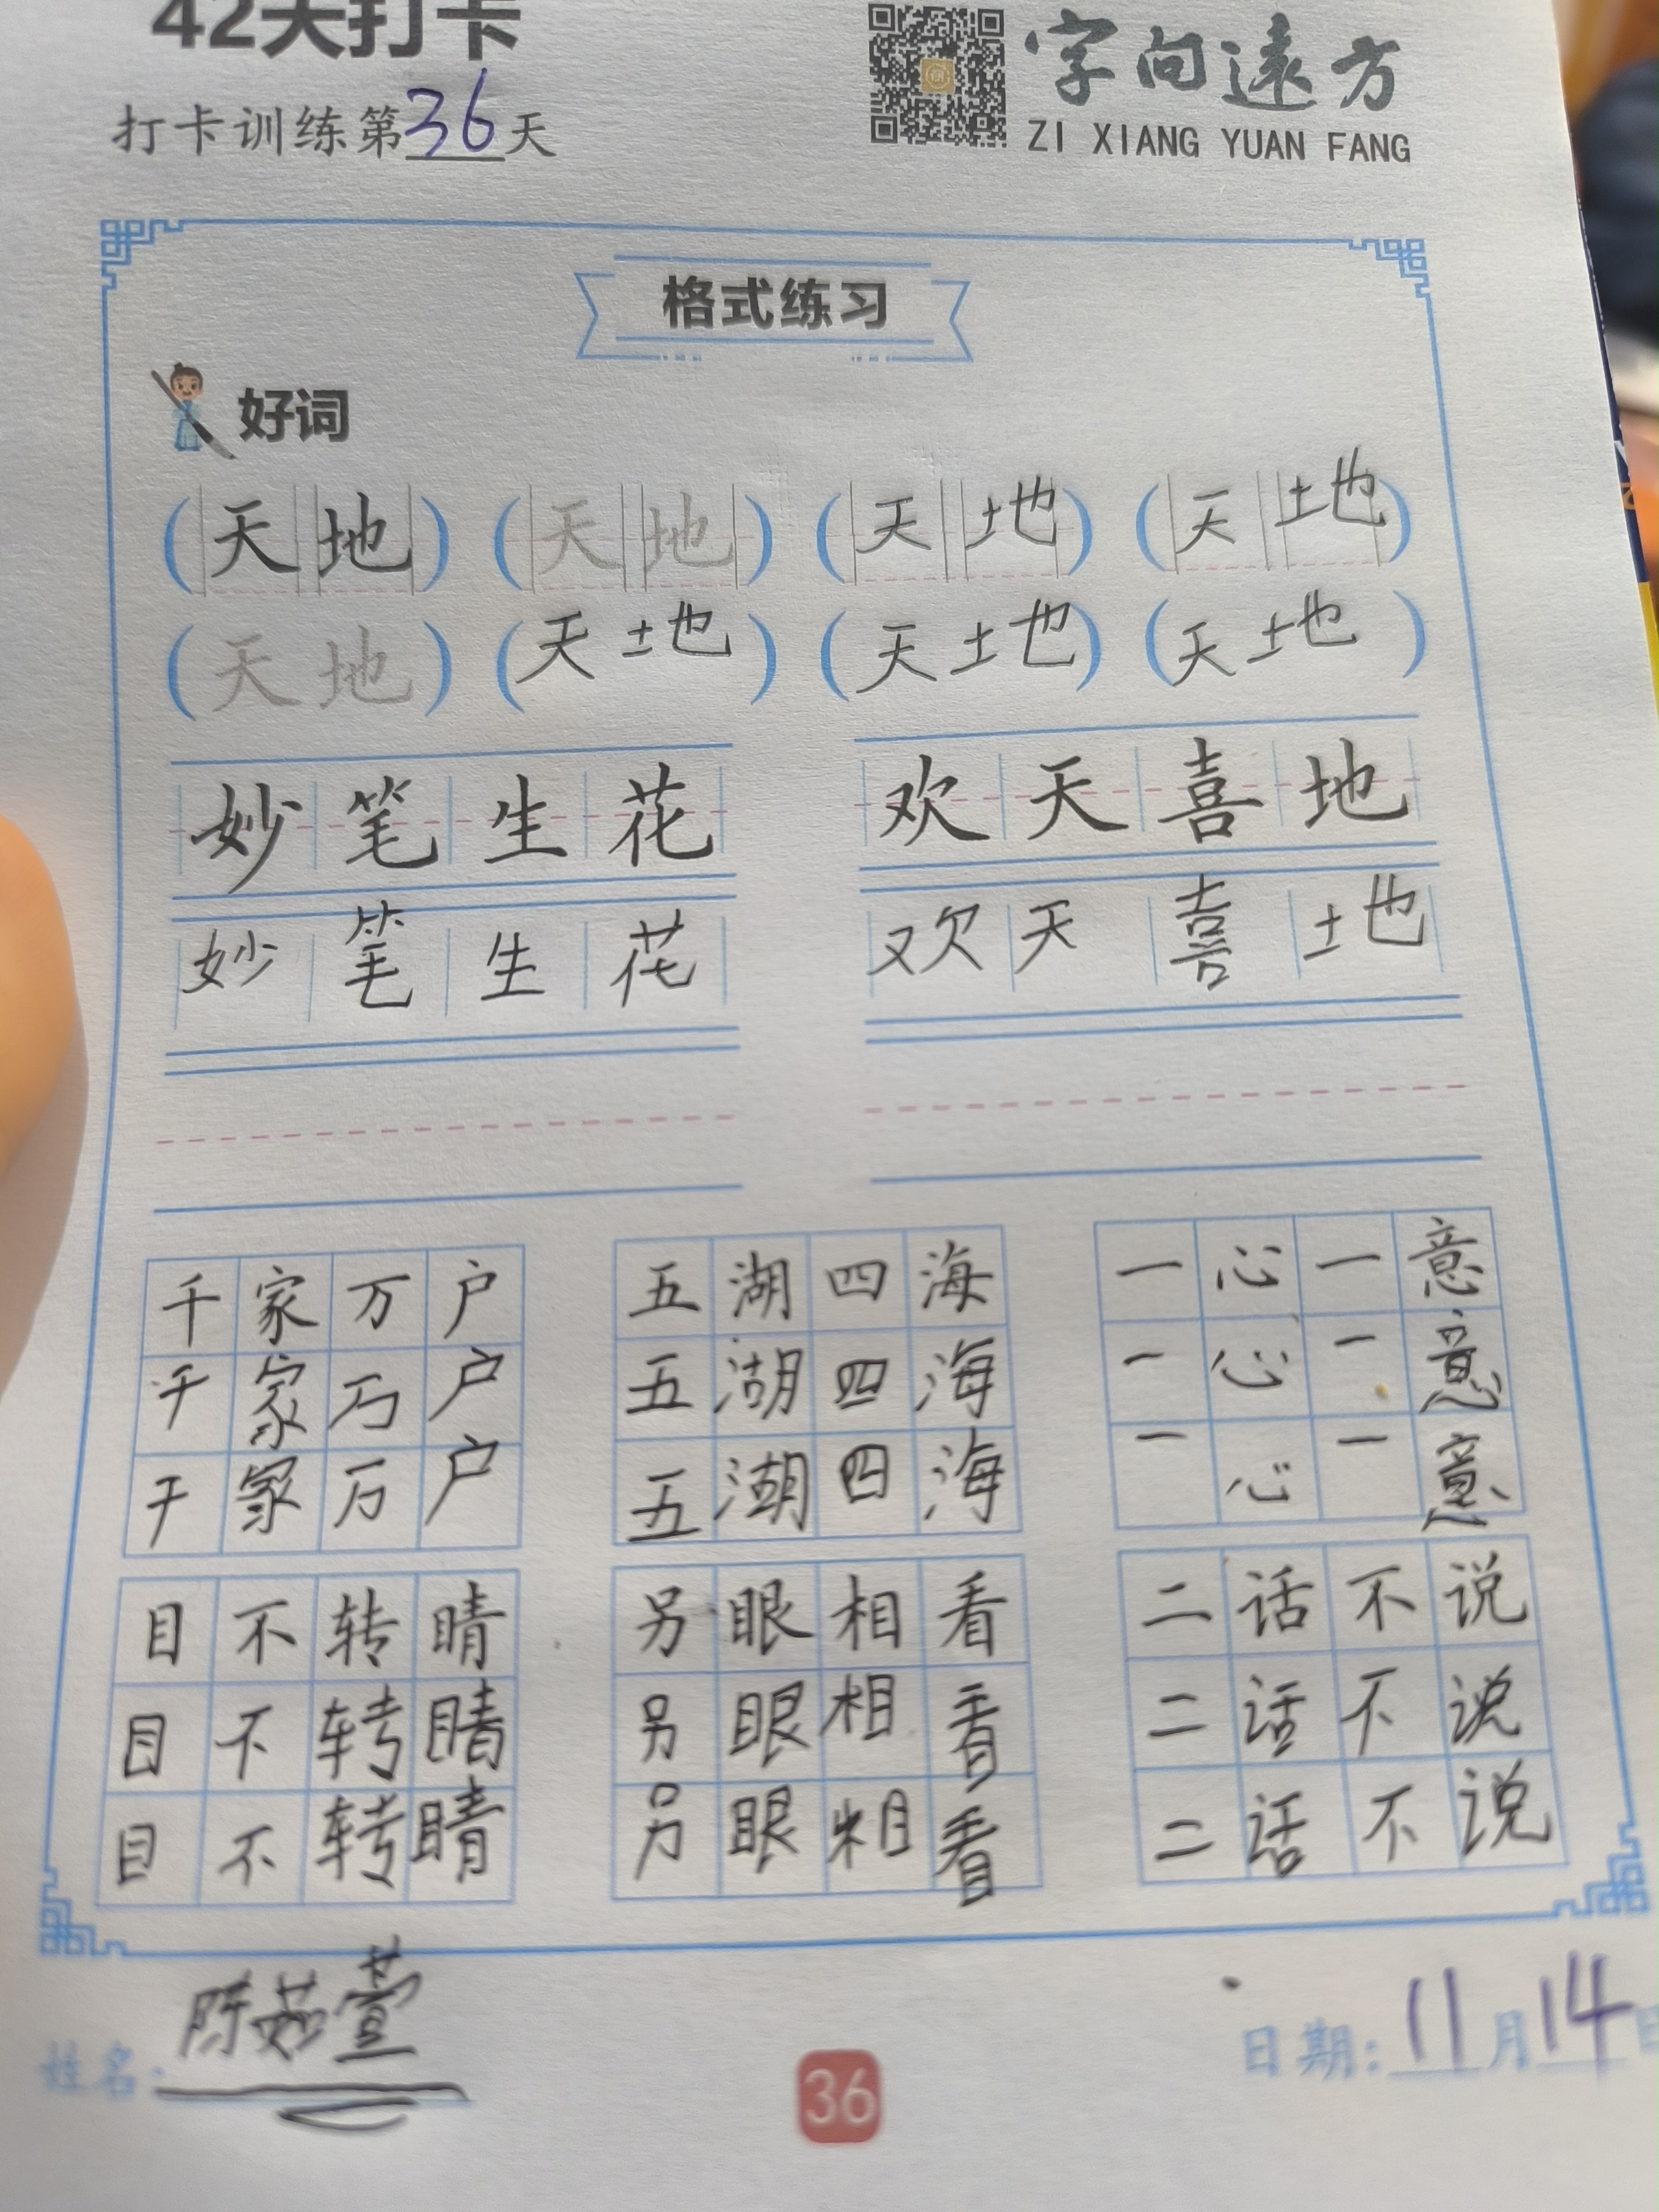 42天打卡
打卡训练第36天
字向远方
ZI XIANG YUAN FANG
格式练习
好词
(天地) (天地) (天地) (天地)
(天地) (天地) (天地) (天地)
妙笔生花 欢天喜地
妙笔生花 欢天喜地
千家万户 五湖四海 一心一意
千家万户 五湖四海 一心一意
千家万户 五湖四海 一心一意
目不转睛 另眼相看 二话不说
目不转睛 另眼相看 二话不说
目不转睛 另眼相看 二话不说
姓名:陈茹萱
日期:11月14日
36